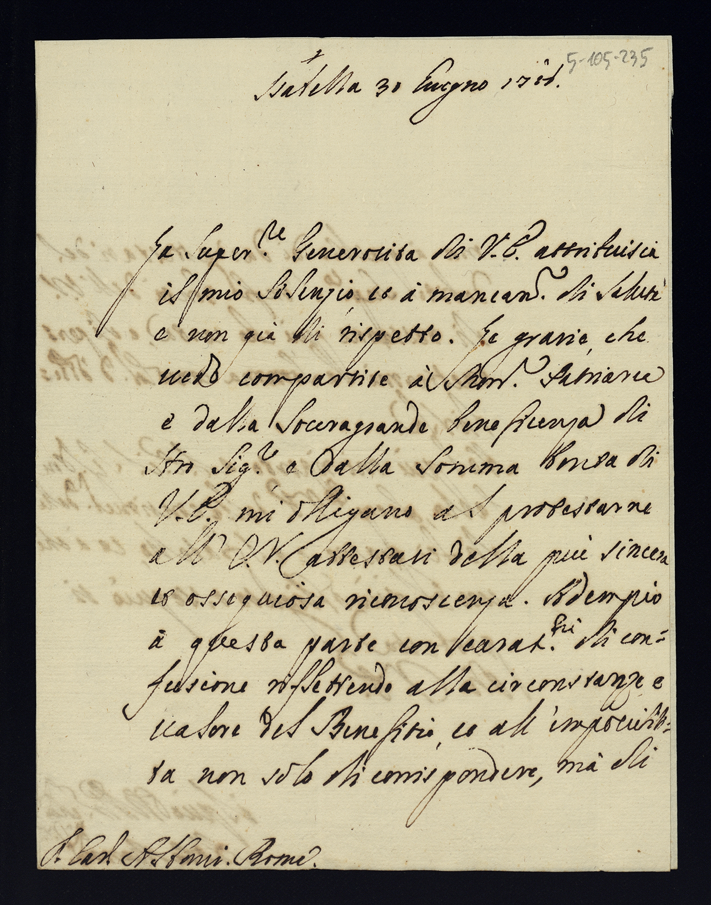 5-105-235
30 Giugno 17
La Super.re Generosità di V.E. attribuisca
il mio Silenzio to à mancan.a di Salute
e non già di rispetto. Le gravie, che
vedo compartite à Mon.r Patriarca
e dalla Sovragrande beneficenza di
Sig.r e dalla Somma bontà di
V.E. mi obligano al protestarne
all' attestati della più sincera
et ossequiosa riconoscenza. Adempio
à questa parte con carat.ri di con=
fusione riflettendo alla circonstanze e
valore del Benefitio, et all'impossibil=
tà non solo di corrispondere, mà di
S. Card. Albani. Roma.